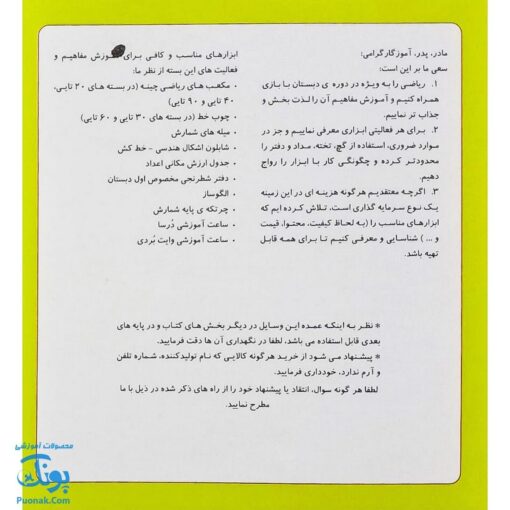 مادر، پدر، آموزگار گرامی:
سعی ما بر این است:
۱. ریاضی را به ویژه در دوره ی دبستان با بازی
همراه کنیم و آموزش مفاهیم آن را لذت بخش و
جذاب تر نماییم.
۲. برای هر فعالیتی ابزاری معرفی نماییم و جز در
موارد ضروری، استفاده از گچ، تخته، مداد و دفتر را
محدودتر کرده و چگونگی کار با ابزار را رواج
دهیم.
۳. اگرچه معتقدیم هر گونه هزینه ای در این زمینه
یک نوع سرمایه گذاری است، تلاش کرده ایم که
ابزارهای مناسب را (به لحاظ کیفیت، محتوا، قیمت
و ... ) شناسایی و معرفی کنیم تا برای همه قابل
تهیه باشد.
ابزارهای مناسب و کافی برای آموزش مفاهیم و
فعالیت های این بسته از نظر ما:
• مکعب های ریاضی چینه (در بسته های ۲۰ تایی،
۴۰ تایی و ۹۰ تایی)
• چوب خط (در بسته های ۳۰ تایی و ۶۰ تایی)
• میله های شمارش
• شابلون اشکال هندسی - خط کش
• جدول ارزش مکانی اعداد
• دفتر شطرنجی مخصوص اول دبستان
• الگوساز
• چرتکه ی پایه شمارش
• ساعت آموزشی دُرسا
• ساعت آموزشی وایت بُردی
* نظر به اینکه عمده این وسایل در دیگر بخش های کتاب و در پایه های
بعدی قابل استفاده می باشد، لطفا در نگهداری آن ها دقت فرمایید.
* پیشنهاد می شود از خرید هر گونه کالایی که نام تولیدکننده، شماره تلفن
و آرم ندارد، خودداری فرمایید.
لطفا هر گونه سوال، انتقاد یا پیشنهاد خود را از راه های ذکر شده در ذیل با ما
مطرح نمایید.
محصولات آموزشی
پونک
Puonak.Com